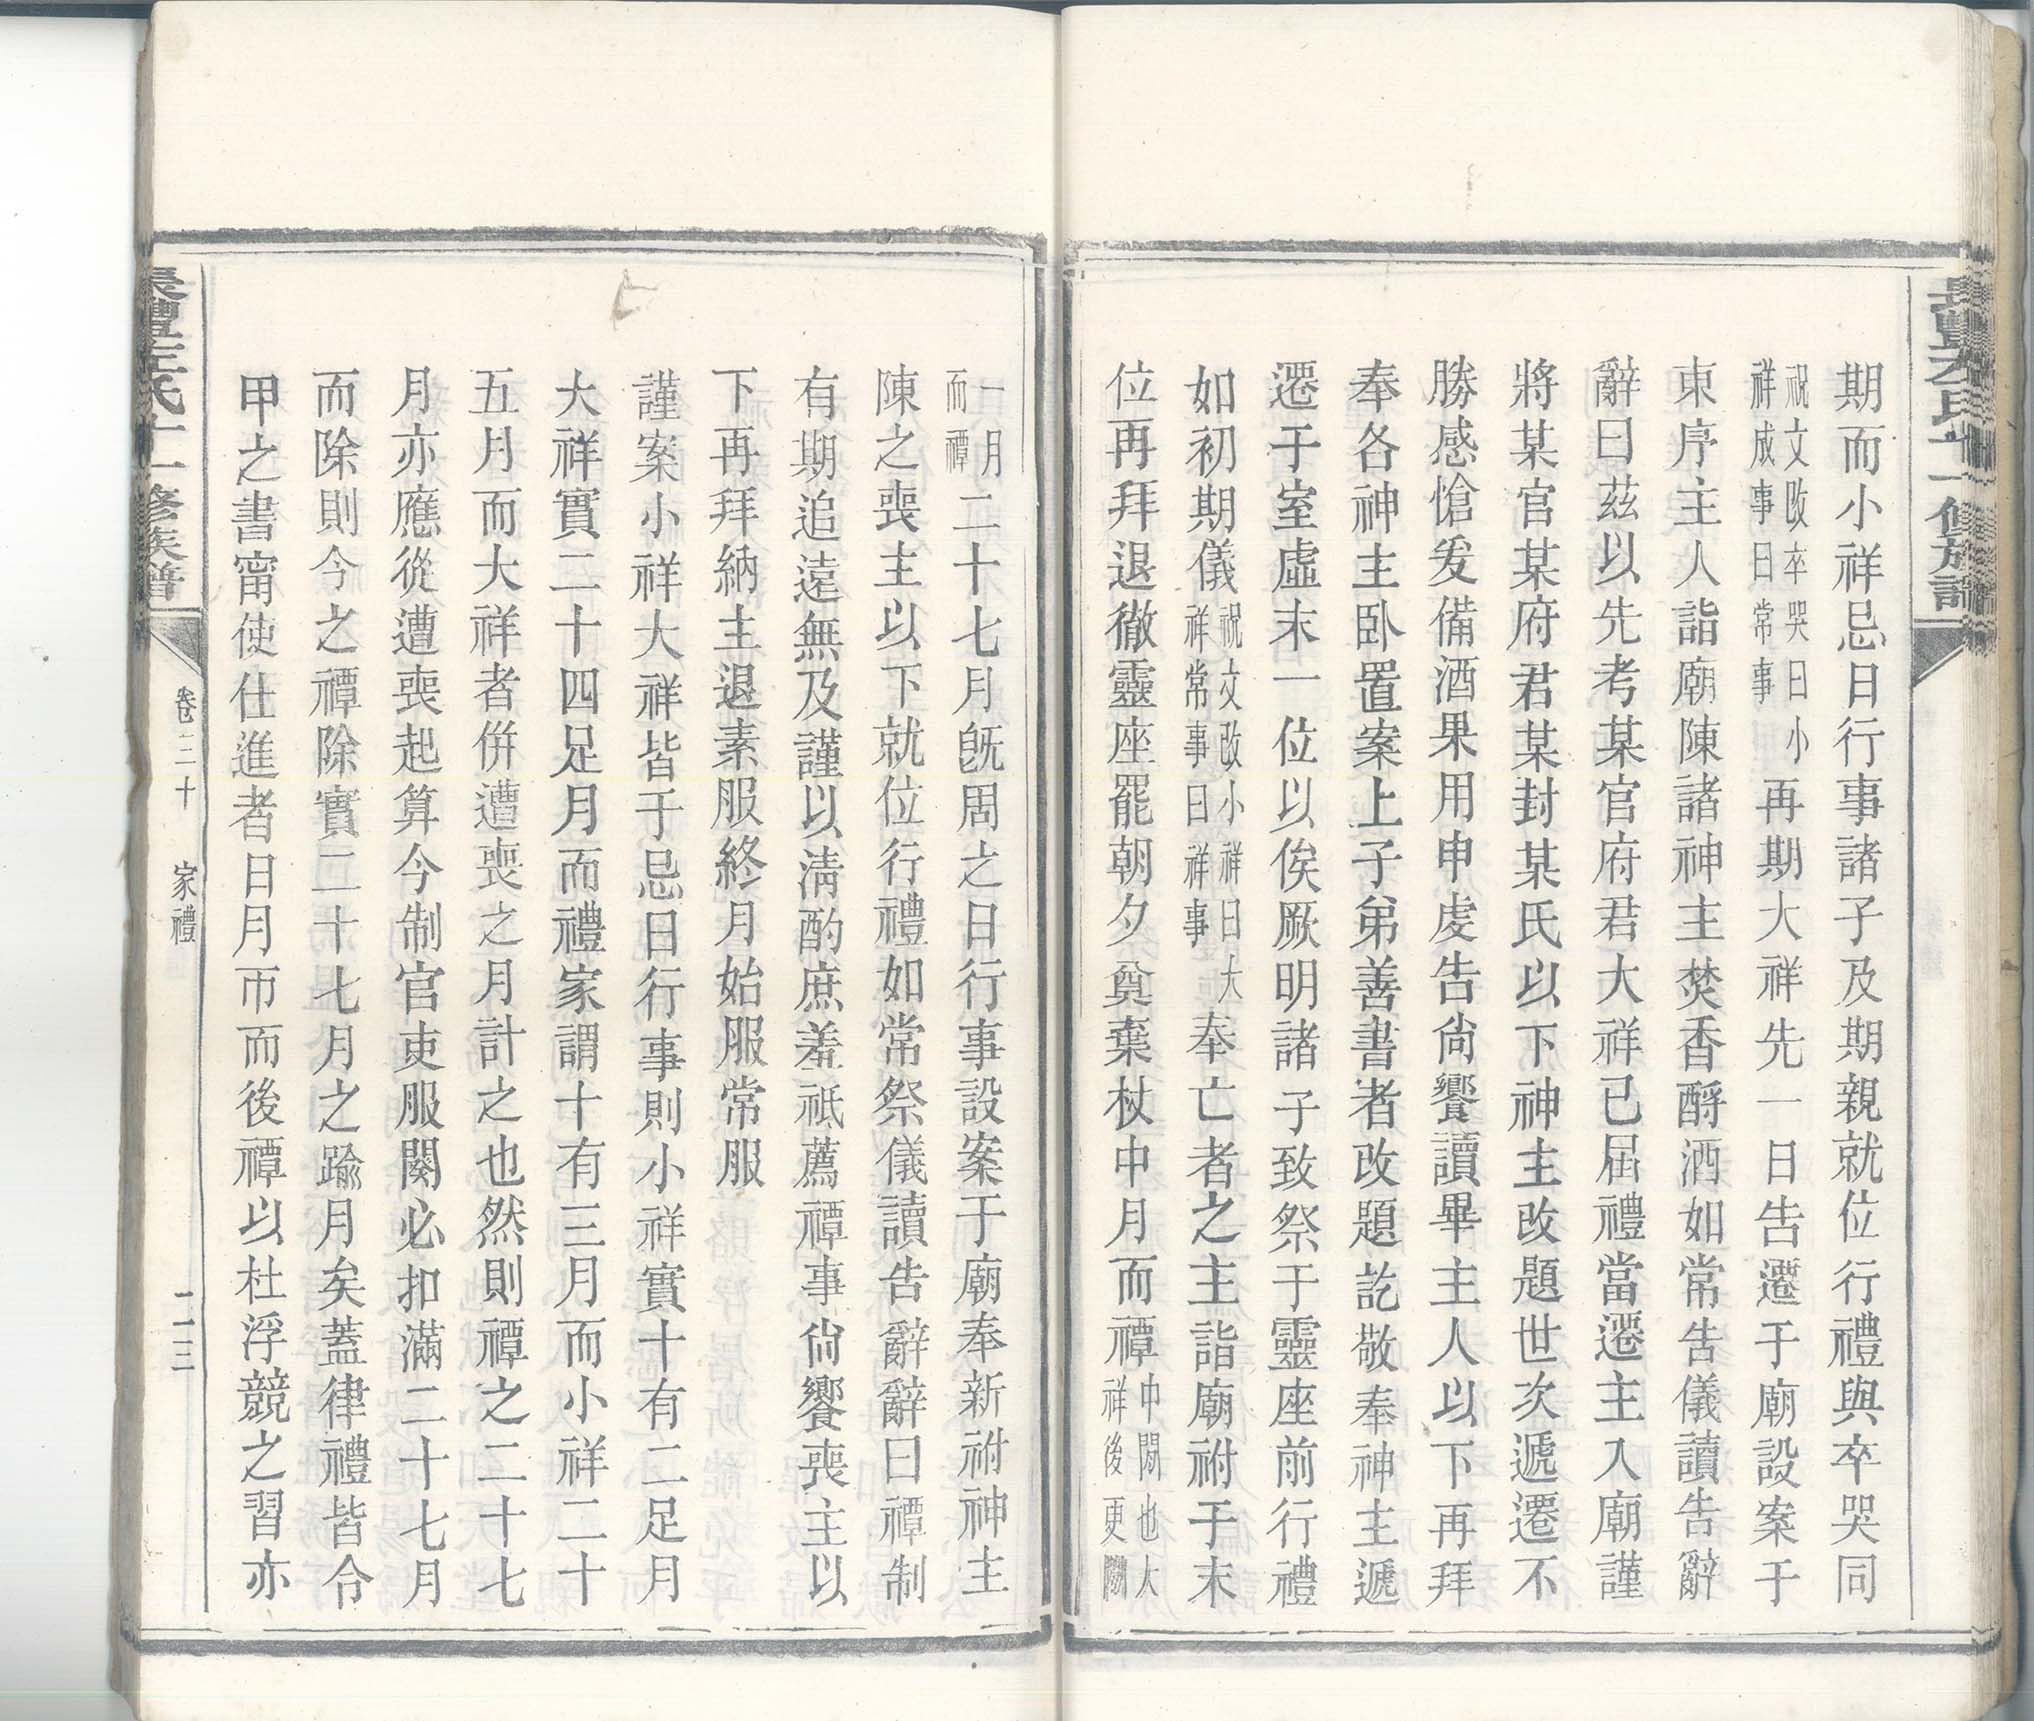 期而小祥忌日行事諸子及期親就位行禮與卒哭同
祝文改卒哭曰小祥成事曰常事再期大祥先一日告遷于廟設案于
東序主人詣廟陳諸神主焚香酹酒如常告儀讀告辭
辭曰茲以先考某官府君大祥已屆禮當遷主入廟謹
將某官某府君某封某氏以下神主改題世次遞遷不
勝感愴爰備酒果用申虔告尙饗讀畢主人以下再拜
奉各神主卧置案上子弟善書者改題訖敬奉神主遞
遷于室虛末一位以俟厥明諸子致祭于靈座前行禮
如初期儀祝文改小祥曰大祥常事曰祥事奉亡者之主詣廟祔于末
位再拜退徹靈座罷朝夕奠棄杖中月而禫中閒也大祥後更閒
一月而禫二十七月旣周之日行事設案于廟奉新祔神主
陳之喪主以下就位行禮如常祭儀讀告辭辭曰禫制
有期追遠無及謹以淸酌庶羞祗薦禫事尙饗喪主以
下再拜納主退素服終月始服常服
謹案小祥大祥皆于忌日行事則小祥實十有二足月
大祥實二十四足月而禮家謂十有三月而小祥二十
五月而大祥者併遭喪之月計之也然則禫之二十七
月亦應從遭喪起算今制官吏服闋必扣滿二十七月
而除則今之禫除實二十七月之踰月矣蓋律禮皆令
甲之書甯使仕進者日月帀而後禫以杜浮競之習亦
氏十一修族譜
卷三十
家禮
二三